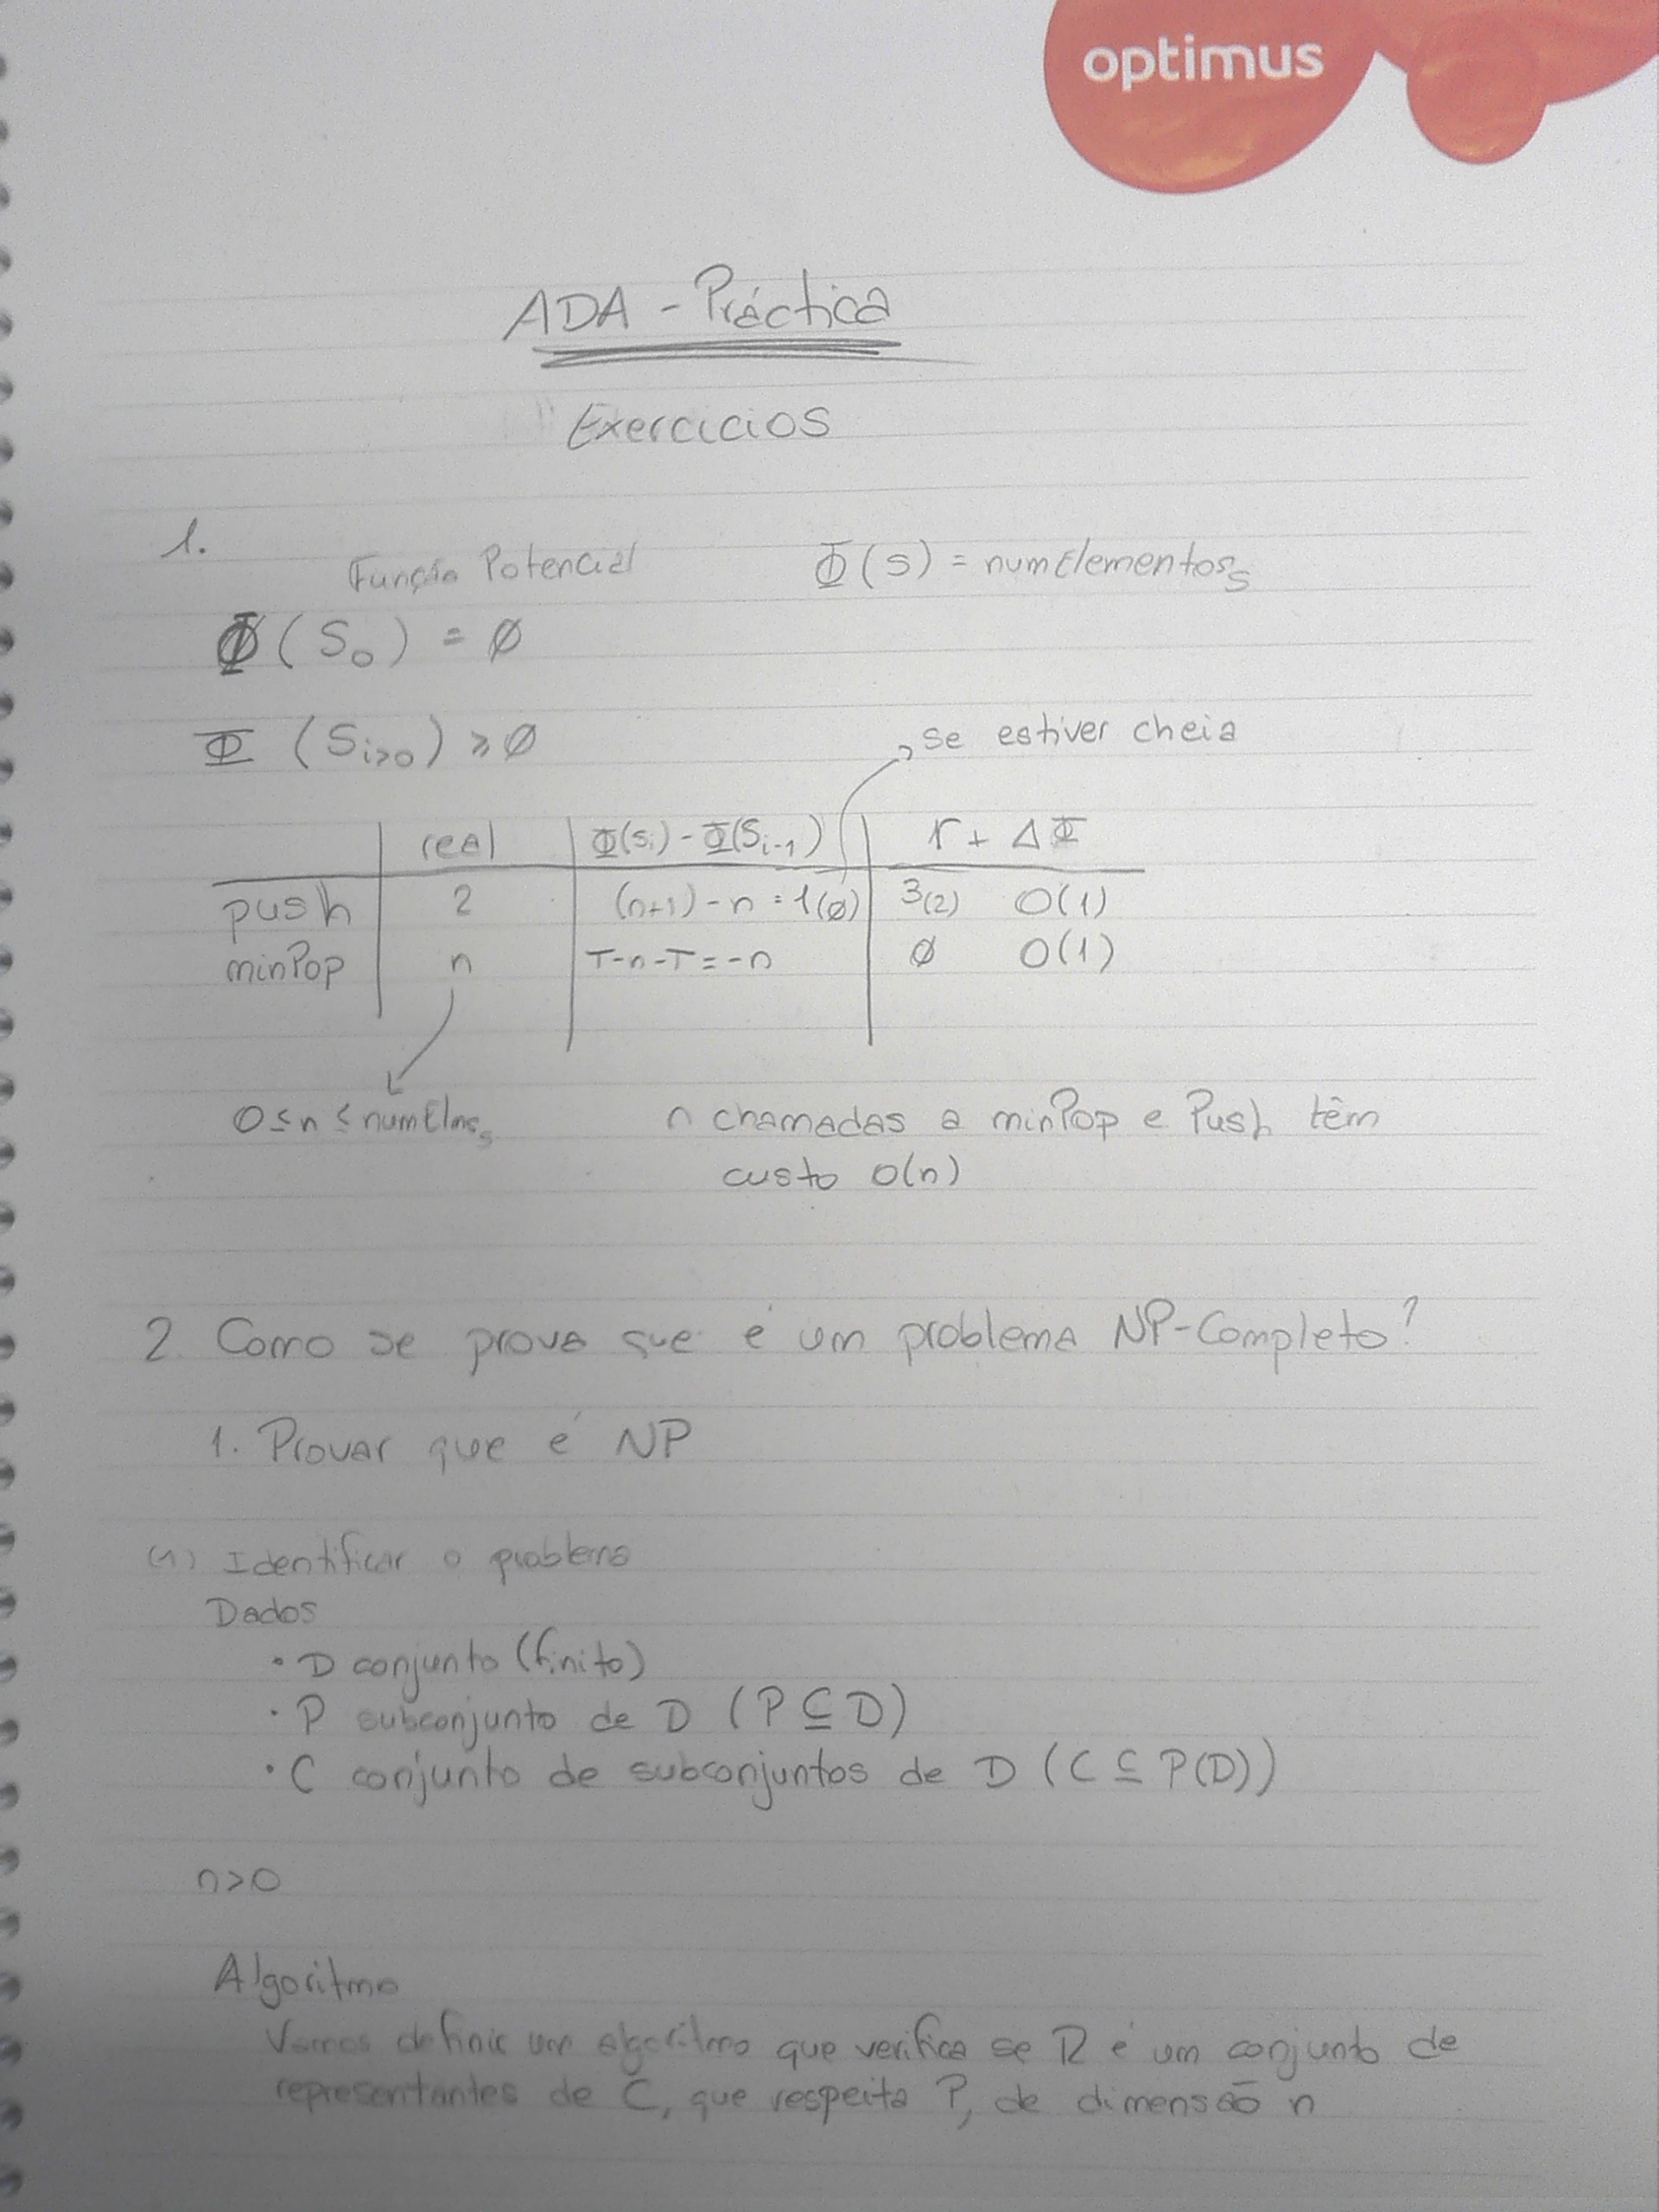 optimus
ADA - Práctica
Exercicios
1.
Função Potencial Φ(S) = numElementos_S
Φ(S₀) = ∅
Φ(S_{i>0}) ⩾ ∅
se estiver cheia
real Φ(Sᵢ) - Φ(Sᵢ₋₁) r + ΔΦ
push 2 (n+1) - n = 1(∅) 3(2) O(1)
minPop n T-n-T = -n ∅ O(1)
0 ≤ n ≤ numElms_S
n chamadas a minPop e Push têm
custo O(n)
2. Como se prova que é um problema NP-Completo?
1. Provar que é NP
(1) Identificar o problema
Dados
• D conjunto (finito)
• P subconjunto de D (P ⊆ D)
• C conjunto de subconjuntos de D (C ⊆ P(D))
n>0
Algoritmo
Vamos definir um algoritmo que verifica se R é um conjunto de
representantes de C, que respeita P, de dimensão n